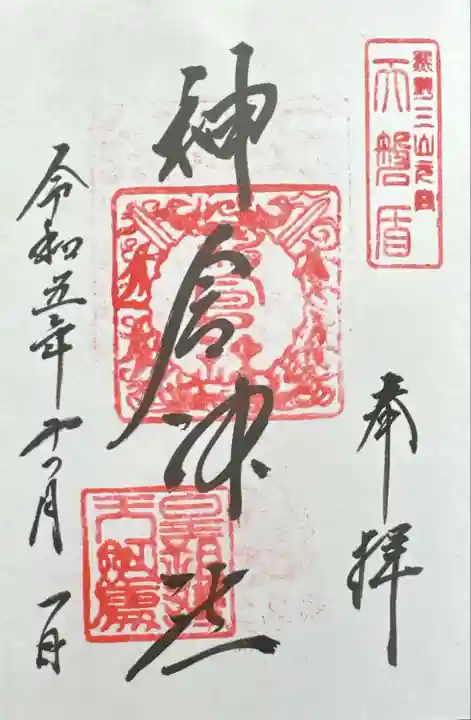 熊野三山元宮
天磐盾
奉拝
神倉神社
令和五年十一月一日